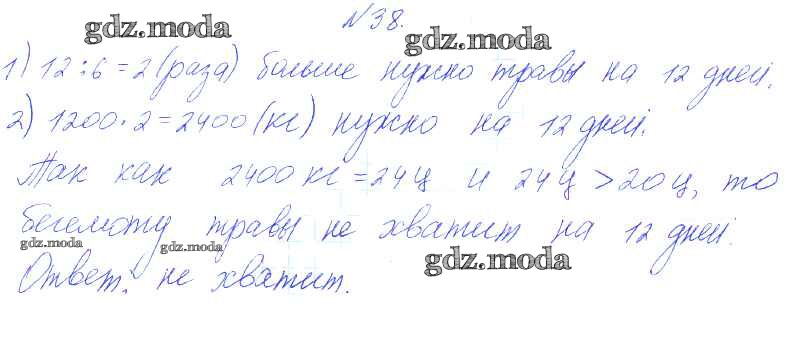 №38.
gdz.moda
gdz.moda
1) 12:6=2 (раза) больше нужно травы на 12 дней.
2) 1200·2=2400 (кг) нужно на 12 дней.
Так как 2400 кг = 24 ц и 24 ц > 20 ц, то
бегемоту травы не хватит на 12 дней.
gdz.moda
gdz.moda
gdz.moda
Ответ: не хватит.